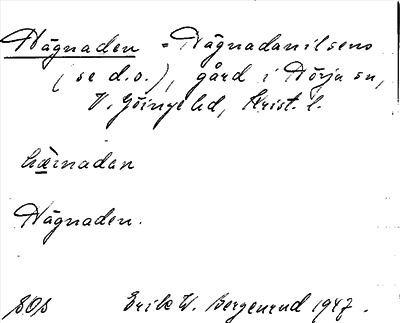 Hägnaden = Hägnadanilsens
(se d.o.), gård i Nörja sn,
V. Göinge hd, Krist. l.
hæ̀rnadan
Hägnaden.
SOS Erik W. Bergenrud 1947.